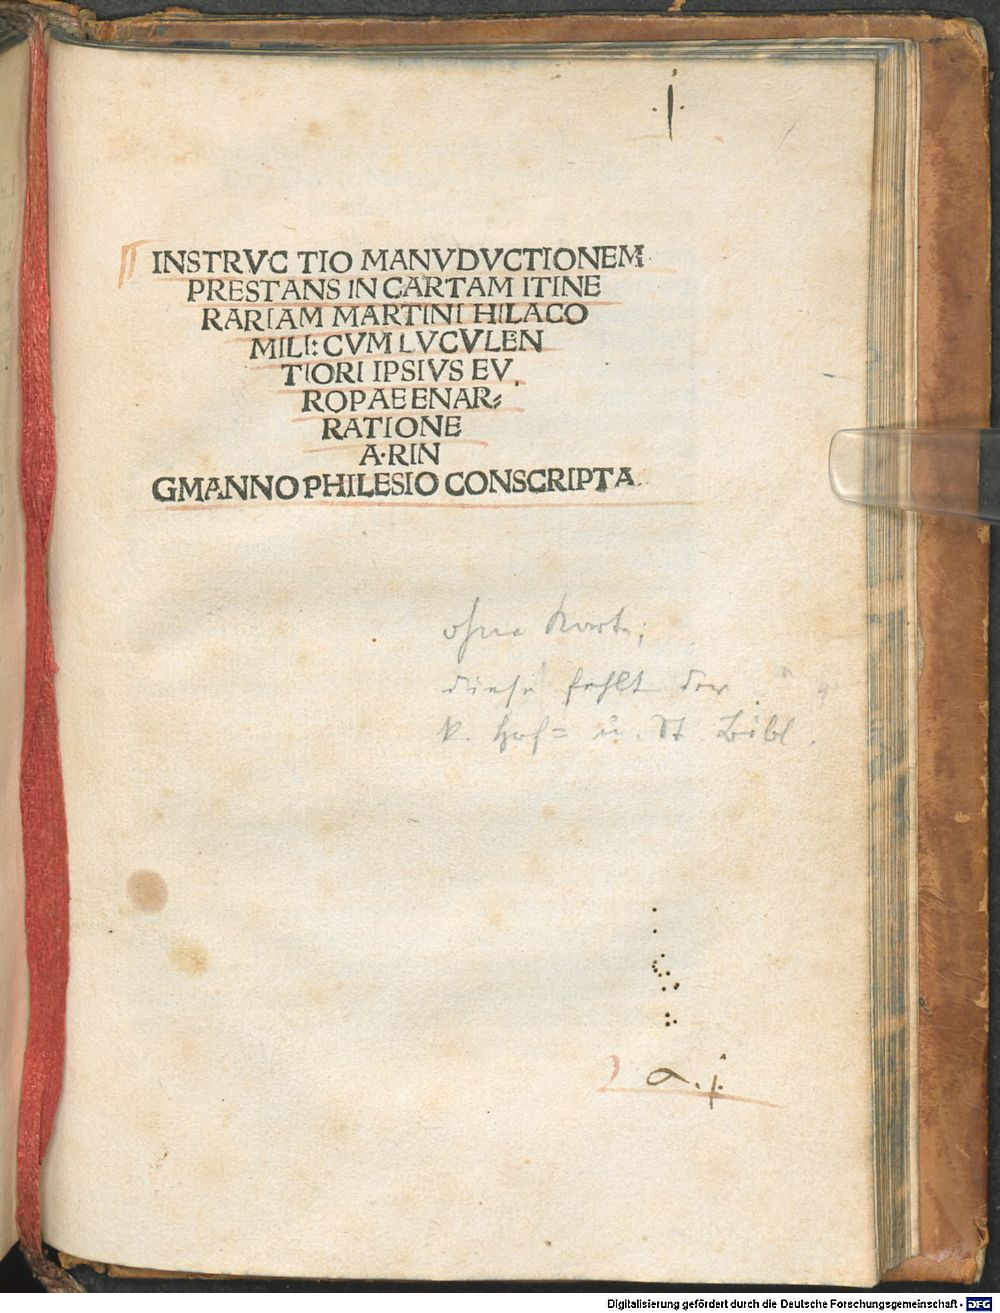 .j.
INSTRVC TIO MANVDVCTIONEM
PRESTANS IN CARTAM ITINE
RARIAM MARTINI HILACO
MILI: CVM LVCVLEN
TIORI IPSIVS EV
ROPAE ENAR⸗
RATIONE
A·RIN
GMANNO PHILESIO CONSCRIPTA.
ohne Karte;
diese fehlt der
k. Hof= u. St. Bibl.
2 a.j.
Digitalisierung gefördert durch die Deutsche Forschungsgemeinschaft - DFG